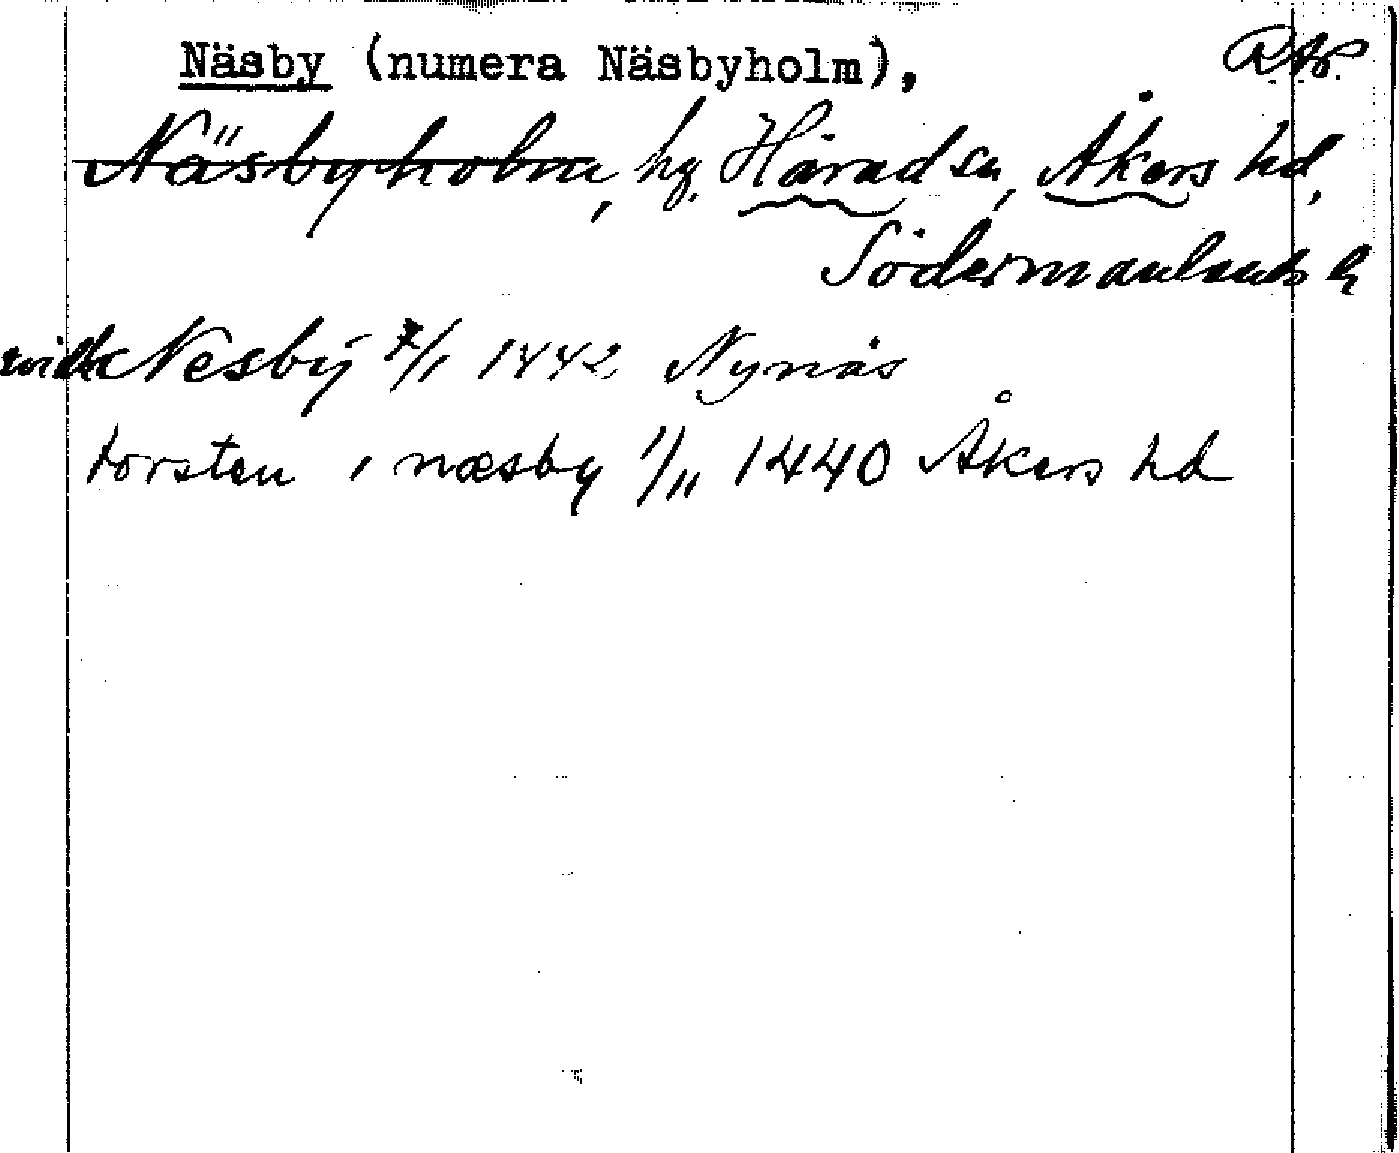 Näsby (numera Näsbyholm), RAp.
Näsbyholm, hg. Härad sn, Åkers hd,
Södermanlands l.
Nesbÿ 7/1 1442 Nynäs
torsten i næsby 1/11 1440 Åkers hd